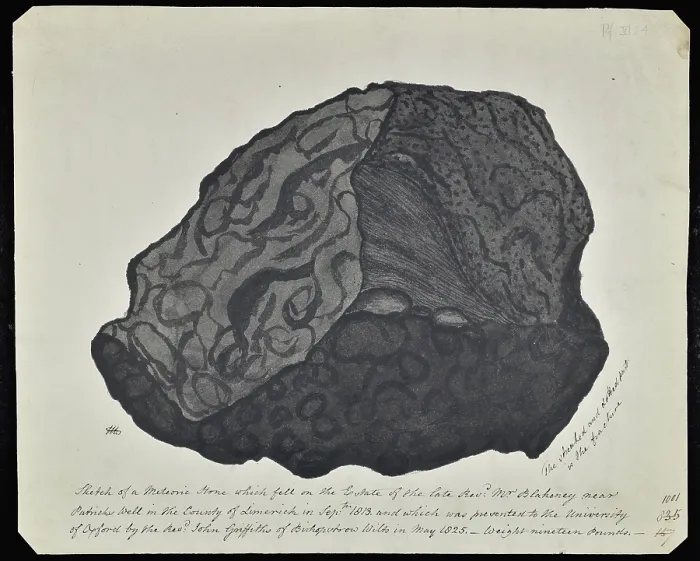 The streaked and dotted part
is the fracture
Sketch of a Meteoric Stone which fell on the Estate of the late Revd. Mr. Blakeney near
Patricks Well in the County of Limerick in Septr. 1813. and which was presented to the University
of Oxford by the Revd. John Griffiths of Bishopstrow Wilts in May 1825. — Weight nineteen Pounds. —
1001
835